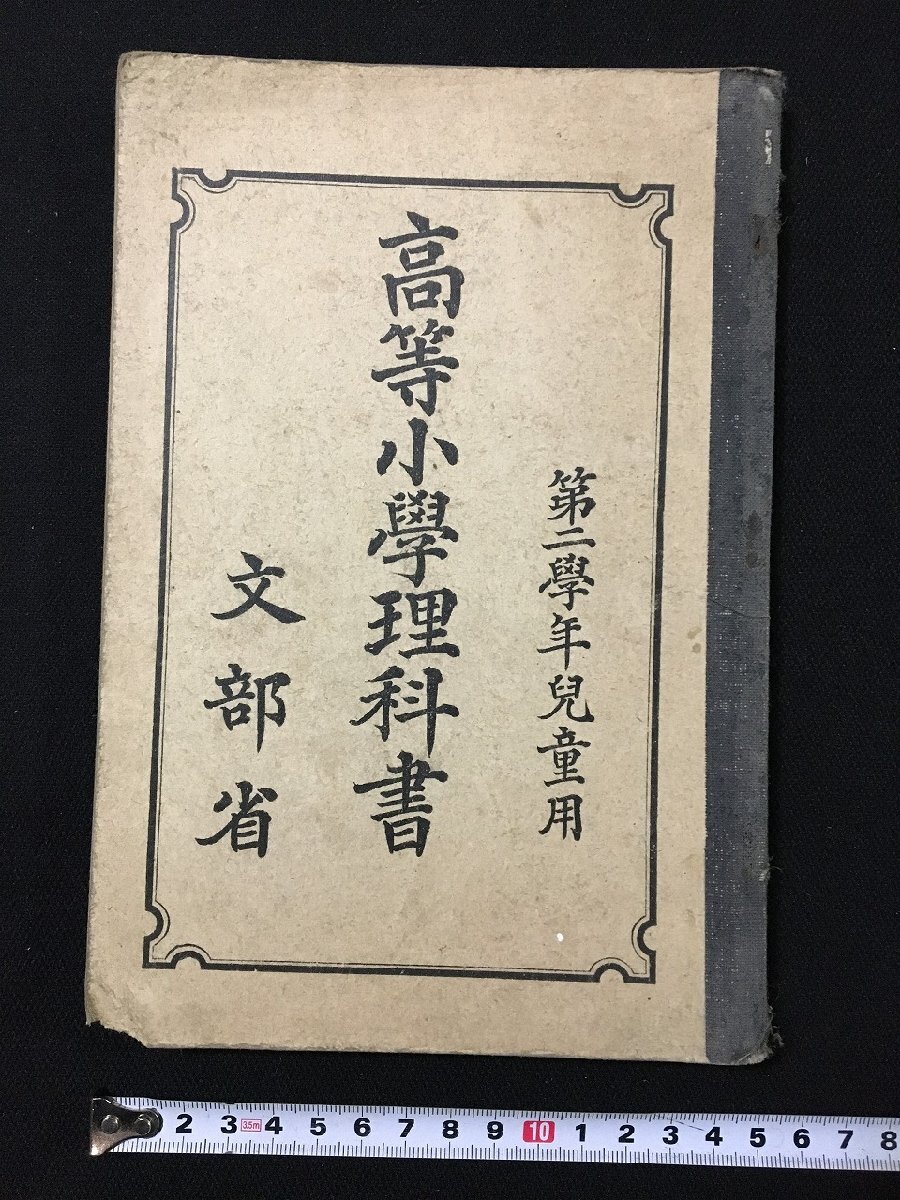 第二學年兒童用
高等小學理科書
文部省
2 3 3.5m 4 5 6 7 8 9 10 1 2 3 4 5 6 7 8